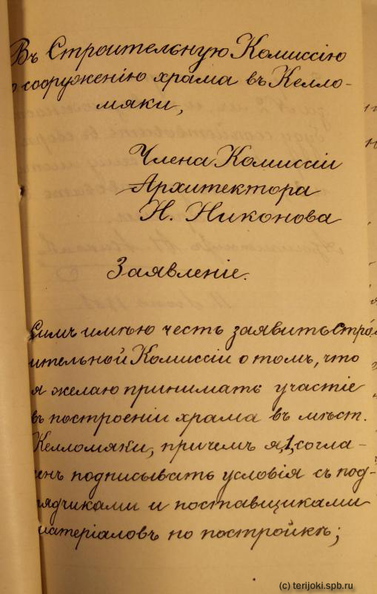 Въ Строительную Комиссію
о сооруженію храма въ Келло-
мяки,
Члена Комиссіи
Архитектора
Н. Никонова
Заявленіе.
Симъ имѣю честь заявить Стро-
ительной Комиссіи о томъ, что
я желаю принимать участіе
въ построеніи храма въ мѣст.
Келломяки, причемъ я, 1, согла-
сенъ подписывать условія съ под-
рядчиками и поставщиками
матеріаловъ по постройкѣ;
(c) terijoki.spb.ru